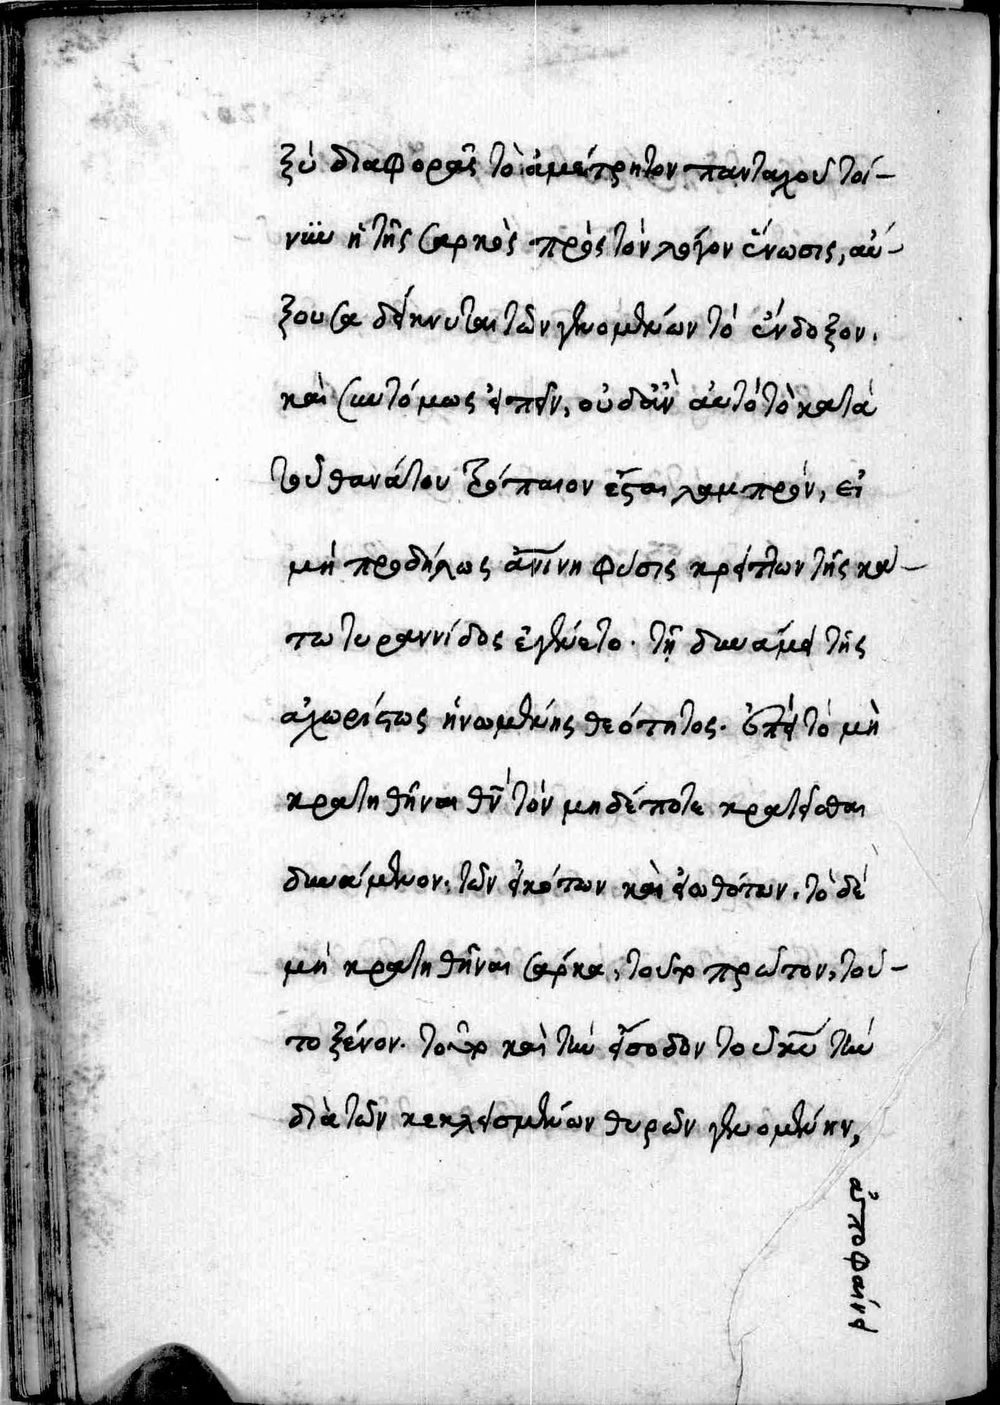 ξὺ διαφορᾶς τὸ ἀμέτρητον πανταχοῦ τοί-
νυν ἡ τῆς σαρκὸς πρὸς τὸν λόγον ἕνωσις, αὔ-
ξουσα δείκνυται τῶν γενομένων τὸ ἔνδοξον.
καὶ συντόμως εἰπεῖν, οὐδ' ἂν αὐτὸ τὸ κατὰ
τοῦ θανάτου τρόπαιον εἶναι λαμπρόν, εἰ
μὴ προδήλως ἀνίνη φύσις κρείττων τῆς κα-
τω τυραννίδος ἐγένετο. τῇ δυνάμει τῆς
ἀχωρίστως ἡνωμένης θεότητος. ἐπεὶ τὸ μὴ
κρατηθῆναι θν̅ τὸν μηδέποτε κρατεῖσθαι
δυνάμενον. τῶν εἰκότων καὶ εἰωθότων. τὸ δὲ
μὴ κρατηθῆναι σάρκα, τοῦτο πρῶτον, τοῦ-
το ξένον. τοῦτο καὶ τὴν εἴσοδον τοῦ κυ̅ τὴν
διὰ τῶν κεκλεισμένων θυρῶν γενομένην,
ἀποφαίνει